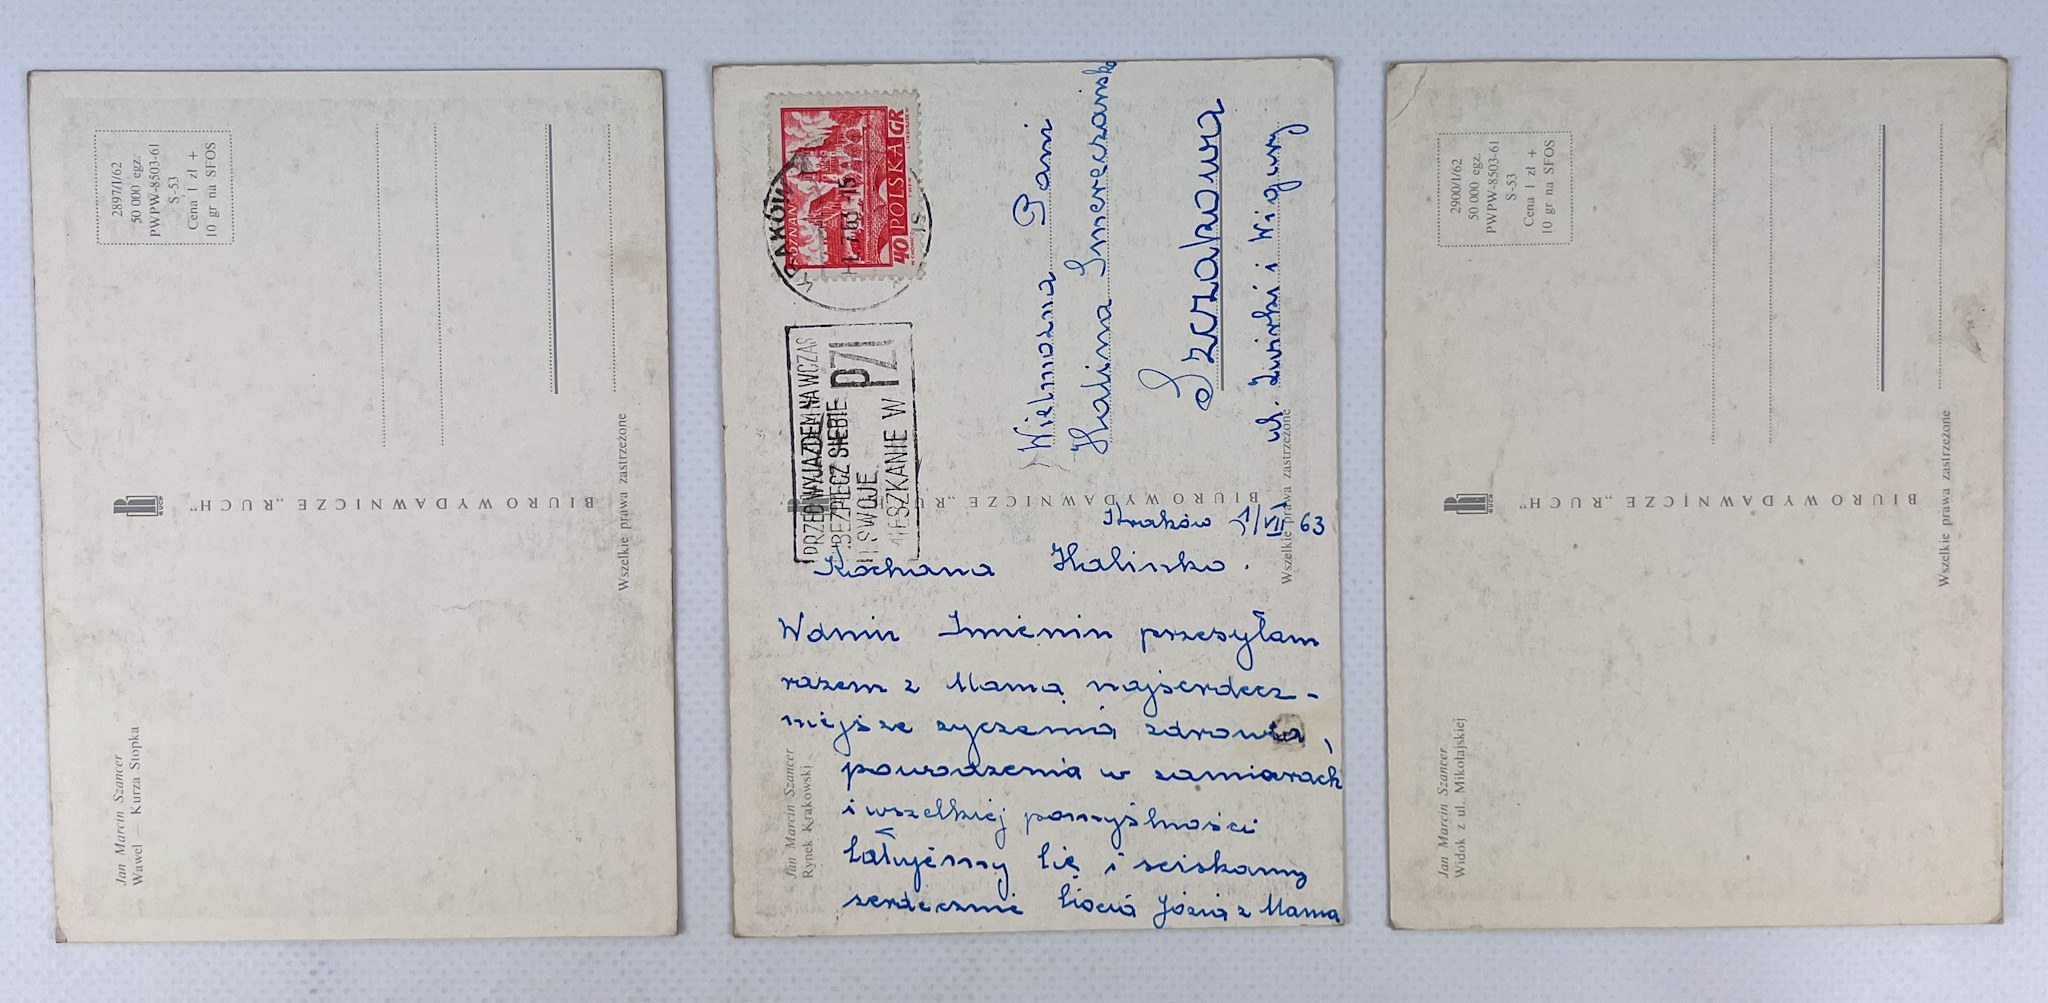 2897/I/62
50 000 egz.
PWPW-8503-61
S-53
Cena 1 zł +
10 gr na SFOS
BIURO WYDAWNICZE „RUCH”
RUCH
Wszelkie prawa zastrzeżone
Jan Marcin Szancer
Wawel — Kurza Stopka
POZNAŃ
40 POLSKA GR
KRAKÓW
PRZED WYJAZDEM NA WCZAS
UBEZPIECZ SIEBIE
I SWOJE
MIESZKANIE W PZU
Wielmożna Pani
Halina Smereczańska
Szczakowa
ul. Żwirki i Wigury
BIURO WYDAWNICZE „RUCH”
Wszelkie prawa zastrzeżone
Jan Marcin Szancer
Rynek Krakowski
Kraków 1/VII 63
Kochana Halinko.
W dniu Imienin przesyłam
razem z Mamą najserdecz-
niejsze życzenia zdrowia,
powodzenia w zamiarach
i wszelkiej pomyślności
Całujemy Cię i ściskamy
serdecznie Ciocia Józia z Mamą
2900/I/62
50 000 egz.
PWPW-8503-61
S-53
Cena 1 zł +
10 gr na SFOS
BIURO WYDAWNICZE „RUCH”
RUCH
Wszelkie prawa zastrzeżone
Jan Marcin Szancer
Widok z ul. Mikołajskiej